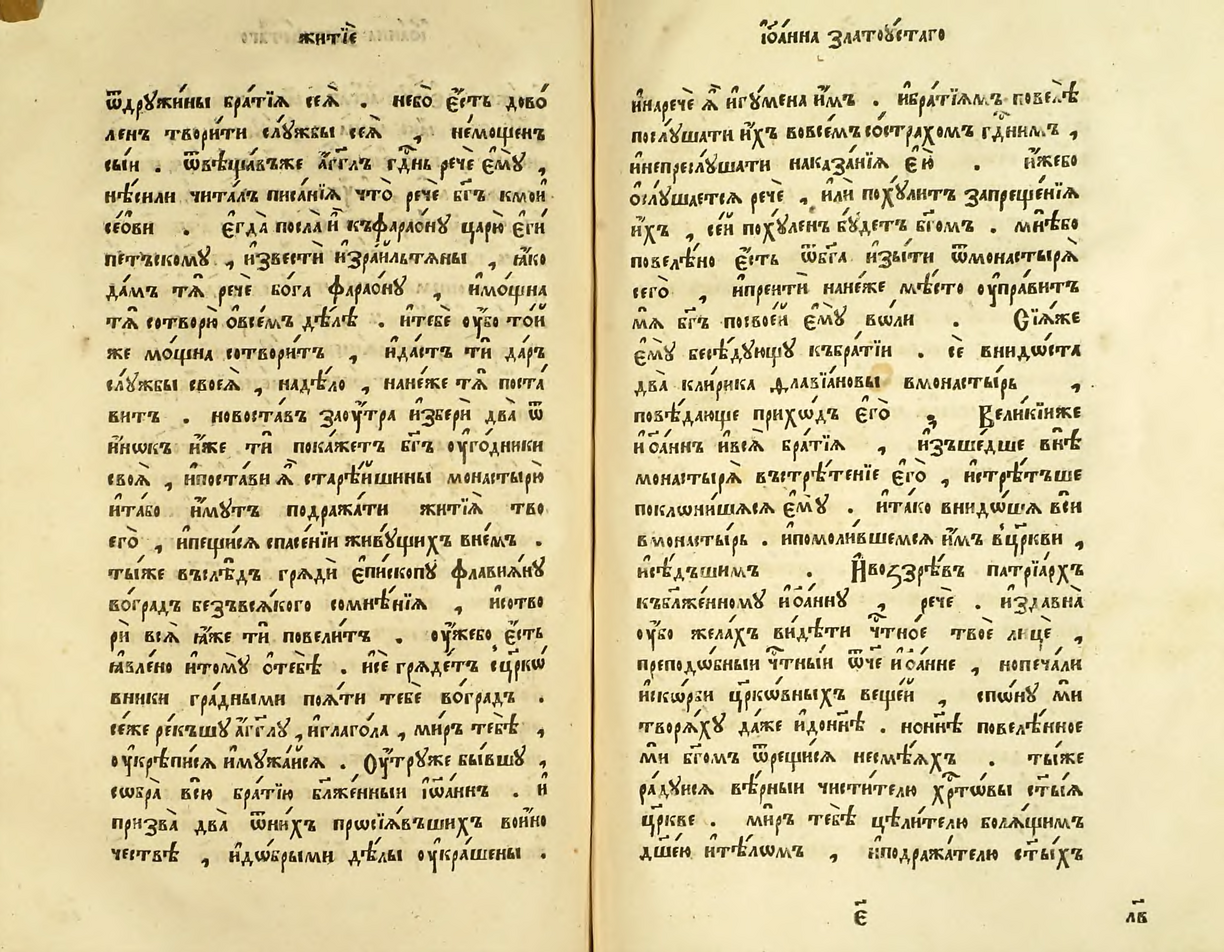 житїѐ
ѿдрꙋжи́ны бра́тїѧ сеѧ̀ . небо̀ є҆́сть дово́
ленъ твори́ти слꙋ́жбы сеѧ̀ , не́мощенъ
сы́и . ѿвѣща́въже а҆́гг҃лъ гд҇нь речѐ є҆мꙋ̀ ,
нѣ́сили чита́лъ писа́нїѧ что̀ речѐ бг҃ъ кмои
се́ови . є҆гда̀ посла̀ и҆̀ къфарао́нꙋ царю̀ є҆ги́
петъскомꙋ , и҆звести и҆зра́ильтѧны , ꙗ҆́ко
да́мъ тѧ̀ речѐ бо́га фарао́нꙋ , и҆мо́щна
тѧ̀ сотворю̀ о҆все́мъ дѣ́лѣ . и҆тебѐ ᲂу҆́бо то́и
же мо́щна сотвори́тъ , и҆да́стъ тѝ да́ръ
слꙋ́жбы своеѧ̀ , надѣ́ло , нане́же тѧ̀ поста́
витъ . новоста́въ заᲂу҆́тра и҆зберѝ два̀ ѿ
и҆́нѡкъ и҆́же тѝ пока́жетъ бг҃ъ ᲂу҆го́дники
своѧ̀ , и҆поста́ви ѧ҆̀ старѣ́ишины монастырю̀
и҆та́бо и҆́мꙋтъ подража́ти житїѧ̀ тво
его̀ , и҆пещи́сѧ спасе́нїи живꙋ́щихъ вне́мъ .
ты́же въслѣ́дъ грѧдѝ є҆пи́скопꙋ флавїѧ́нꙋ
во́градъ безъвсѧ́кого сомнѣ́нїѧ , и҆сотво
рѝ всѧ̀ ꙗ҆́же тѝ повели́тъ . ᲂу҆́жебо є҆́сть
ꙗ҆вле́но и҆то́мꙋ ѡ҆тебѣ̀ . и҆сѐ грѧде́тъ сцр҃кѡ́
вники гра́дными поѧ́ти тебѐ во́градъ .
се́же ре́къшꙋ а҆́гг҃лꙋ , и҆глаго́ла , ми́ръ тебѣ̀ ,
ᲂу҆крѣпи́сѧ и҆мꙋжа́исѧ . Оу҆́трꙋже бы́вшꙋ ,
сѡбра̀ всю̀ бра́тїю бл҃же́нныи і҆ѡа́ннъ . и҆
призва̀ два̀ ѿни́хъ прѡсїѧ́въшихъ воино
че́ствѣ , и҆дѡ́брыми дѣ́лы ᲂу҆кра́шены .
і҆ѡа́нна златоꙋ́стаго
и҆наречѐ ѧ҆̀ и҆гꙋ́мена и҆́мъ . и҆бра́тїѧмъ повелѣ̀
послꙋ́шати и҆́хъ вовсе́мъ состра́хомъ гд҇нимъ ,
и҆непреслꙋ́шати наказа́нїѧ є҆ю̀ . и҆́жебо
ѡ҆слꙋ́шаетсѧ речѐ , и҆лѝ похꙋ́литъ запреще́нїѧ
и҆́хъ , се́и похꙋ́ленъ бꙋ́детъ бг҃омъ . мнѣ́бо
повеле́но є҆́сть ѿбг҃а и҆зы́ти ѿмонастырѧ̀
сего̀ , и҆преити нане́же мѣ́сто ᲂу҆пра́витъ
мѧ̀ бг҃ъ посвое́и є҆мꙋ̀ во́ли . Сїѧ́же
є҆мꙋ̀ бесѣ́дꙋющꙋ къбра́тїи . сѐ внидо́ста
два̀ кли́рика флавїа́новы вмонасты́рь ,
повѣ́дающе прихо́дъ є҆го̀ . Вели́кїиже
и҆ѡа́ннъ и҆всѧ̀ бра́тїѧ , и҆зъше́дше внѣ̀
монастырѧ̀ въстрѣ́тенїе є҆го̀ , и҆стрѣ́тъше
поклони́шасѧ є҆мꙋ̀ . и҆та́ко внидо́шѧ всѝ
вмонасты́рь . и҆помоли́вшемсѧ и҆́мъ вцр҃кви ,
и҆сѣ́дъшимъ . И҆возрѣ́въ патрїа́рхъ
къбл҃же́нномꙋ и҆ѡа́ннꙋ , речѐ . и҆здавна̀
ᲂу҆́бо жела́хъ ви́дѣти чт҇но́е твоѐ лицѐ ,
преподо́бныи чт҇ны́и ѿч҃е и҆ѡа́нне , нопеча́ли
и҆ско́рби цр҃ко́вныхъ веще́и , спо́нꙋ мѝ
творѧ́хꙋ да́же и҆дони́нѣ . нони́нѣ повеле́нное
мѝ бг҃омъ ѿрещи́сѧ несмѣ́ѧхъ . ты́же
ра́дꙋисѧ вѣ́рныи чисти́телю хр҇то́вы ст҃ы́ѧ
цр҃кве . ми́ръ тебѣ̀ цѣли́телю болѧ́щимъ
дш҃е́ю и҆тѣ́ломъ , и҆подража́телю ст҃ы́хъ
є҃
лв